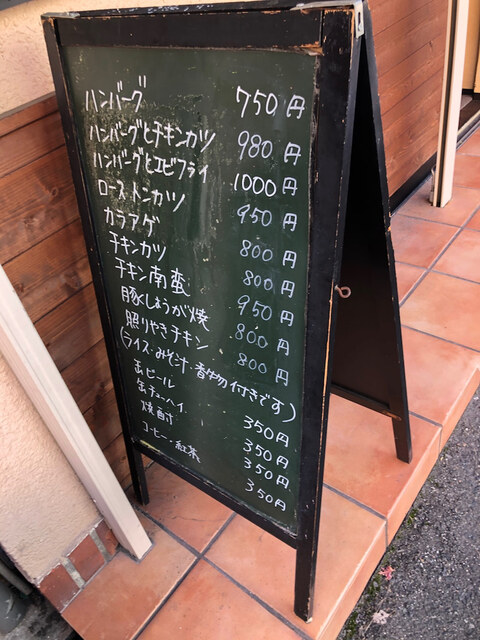 ハンバーグ 750円
ハンバーグとチキンカツ 980円
ハンバーグとエビフライ 1000円
ロース・トンカツ 950円
カラアゲ 800円
チキンカツ 800円
チキン南蛮 950円
豚しょうが焼 800円
照りやきチキン 800円
(ライス・みそ汁・香物付きです)
缶ビール 350円
缶チューハイ 350円
焼酎 350円
コーヒー・紅茶 350円